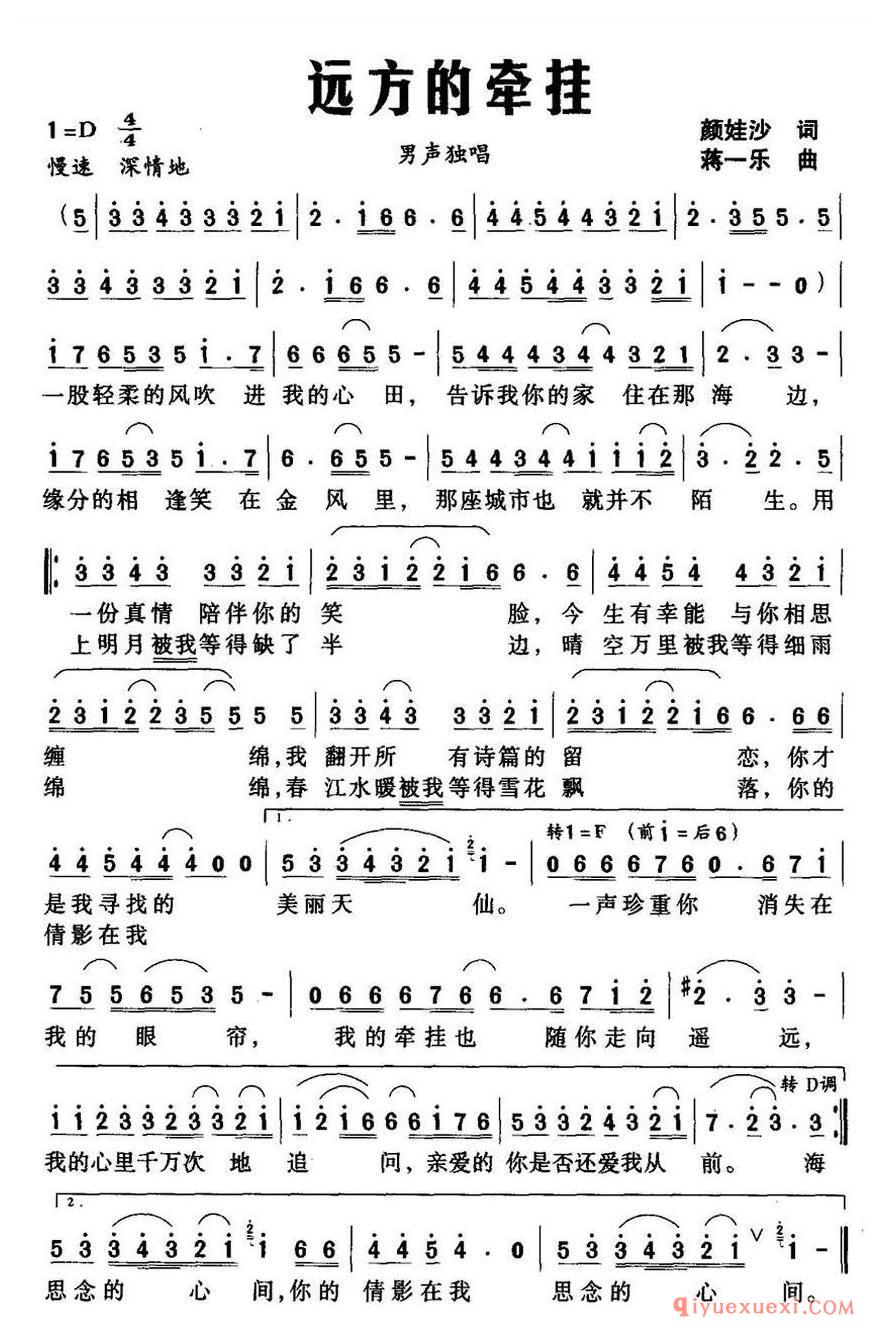 远方的牵挂
1=D 4/4
颜娃沙 词
慢速 深情地
男声独唱
蒋一乐 曲
一股轻柔的风吹 进 我的心 田, 告诉我你的家 住在那 海 边,
缘分的相 逢笑 在 金 风 里, 那座城市也 就并不 陌 生。用
一份真情 陪伴你的 笑 脸, 今 生有幸能 与你相思
上明月被我等得缺了 半 边, 晴 空万里被我等得细雨
缠 绵,我 翻开所 有诗篇的 留 恋, 你才
绵 绵,春 江水暖被我等得雪花 飘 落, 你的
1. 转1=F (前i=后6)
是我寻找的 美丽天 仙。 一声珍重你 消失在
倩影在我
我的 眼 帘, 我的牵挂也 随你走向 遥 远,
转 D调
我的心里千万次 地 追 问, 亲爱的 你是否还爱我从 前。 海
2.
思念的 心 间,你的 倩影在我 思念的 心 间。
qiyuexuexi.com